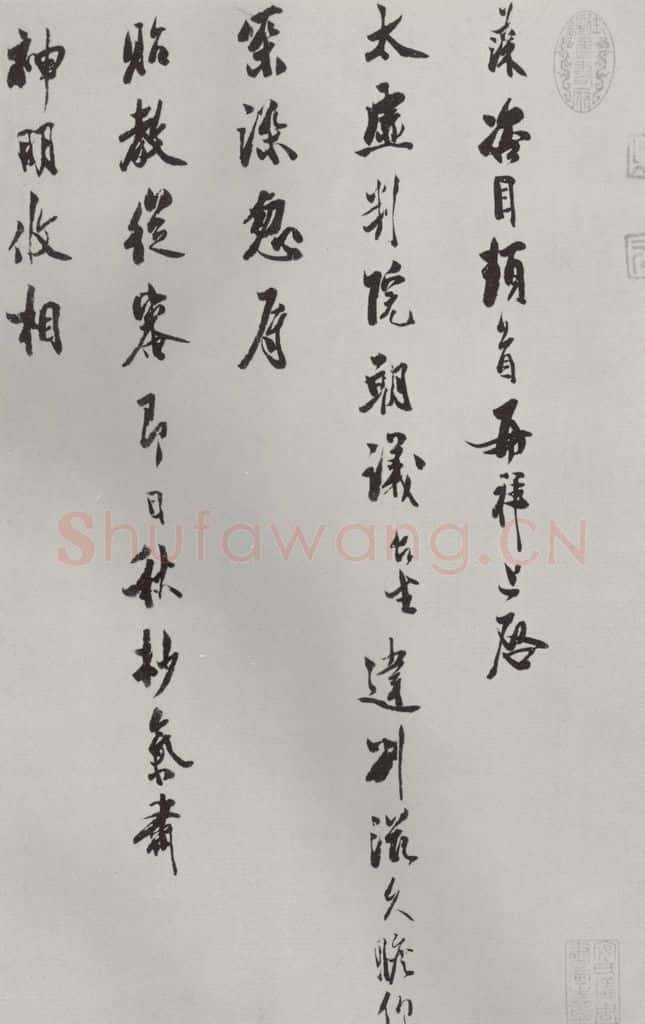 咨目頓首再拜上啓
太虛判院朝議台坐違別滋久瞻仰
深忽辱
貽教從審即日秋杪氣肅
神明攸相
Shufawang.CN